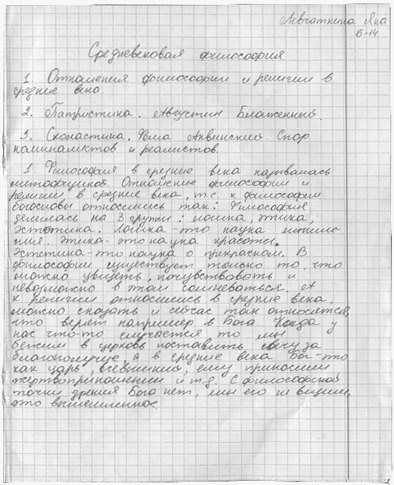 Левчаткина Яна
Б-14
Средневековая философия
1. Отношения философии и религии в
средние века.
2. Патристика. Августин Блаженный.
3. Схоластика. Фома Аквинский Спор
номиналистов и реалистов.
1. Философия в средние века называлась
Отношение философии и
религии в средние века, т.с. к философии
богословы относились так: Философия
делилась на 3 группы: логика, этика,
эстетика. Логика - это наука мышле-
ния. Этика - это наука красоты.
Эстетика - это наука о прекрасном. В
философии существует только то, что
можно увидеть, почувствовать и
невозможно в этом сомневаться. А
к религии относились в средние века,
можно сказать и сейчас так относятся,
что верят например в Бога. Когда у
нас что-то случается то мы
бежим в церковь поставить свечу за
благополучие, а в средние века Бог-это
как царь, всевышний, ему приносили
жертвоприношения и т.д. С философской
точки зрения Бога нет, мы его не видим,
это вымышленное.